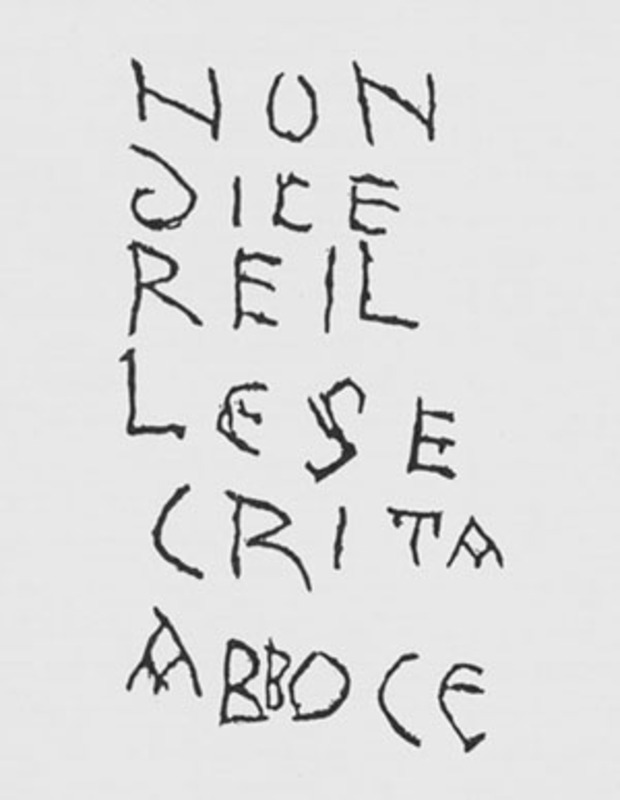 NON
DICE
REIL
LESE
CRITA
ABBOCE